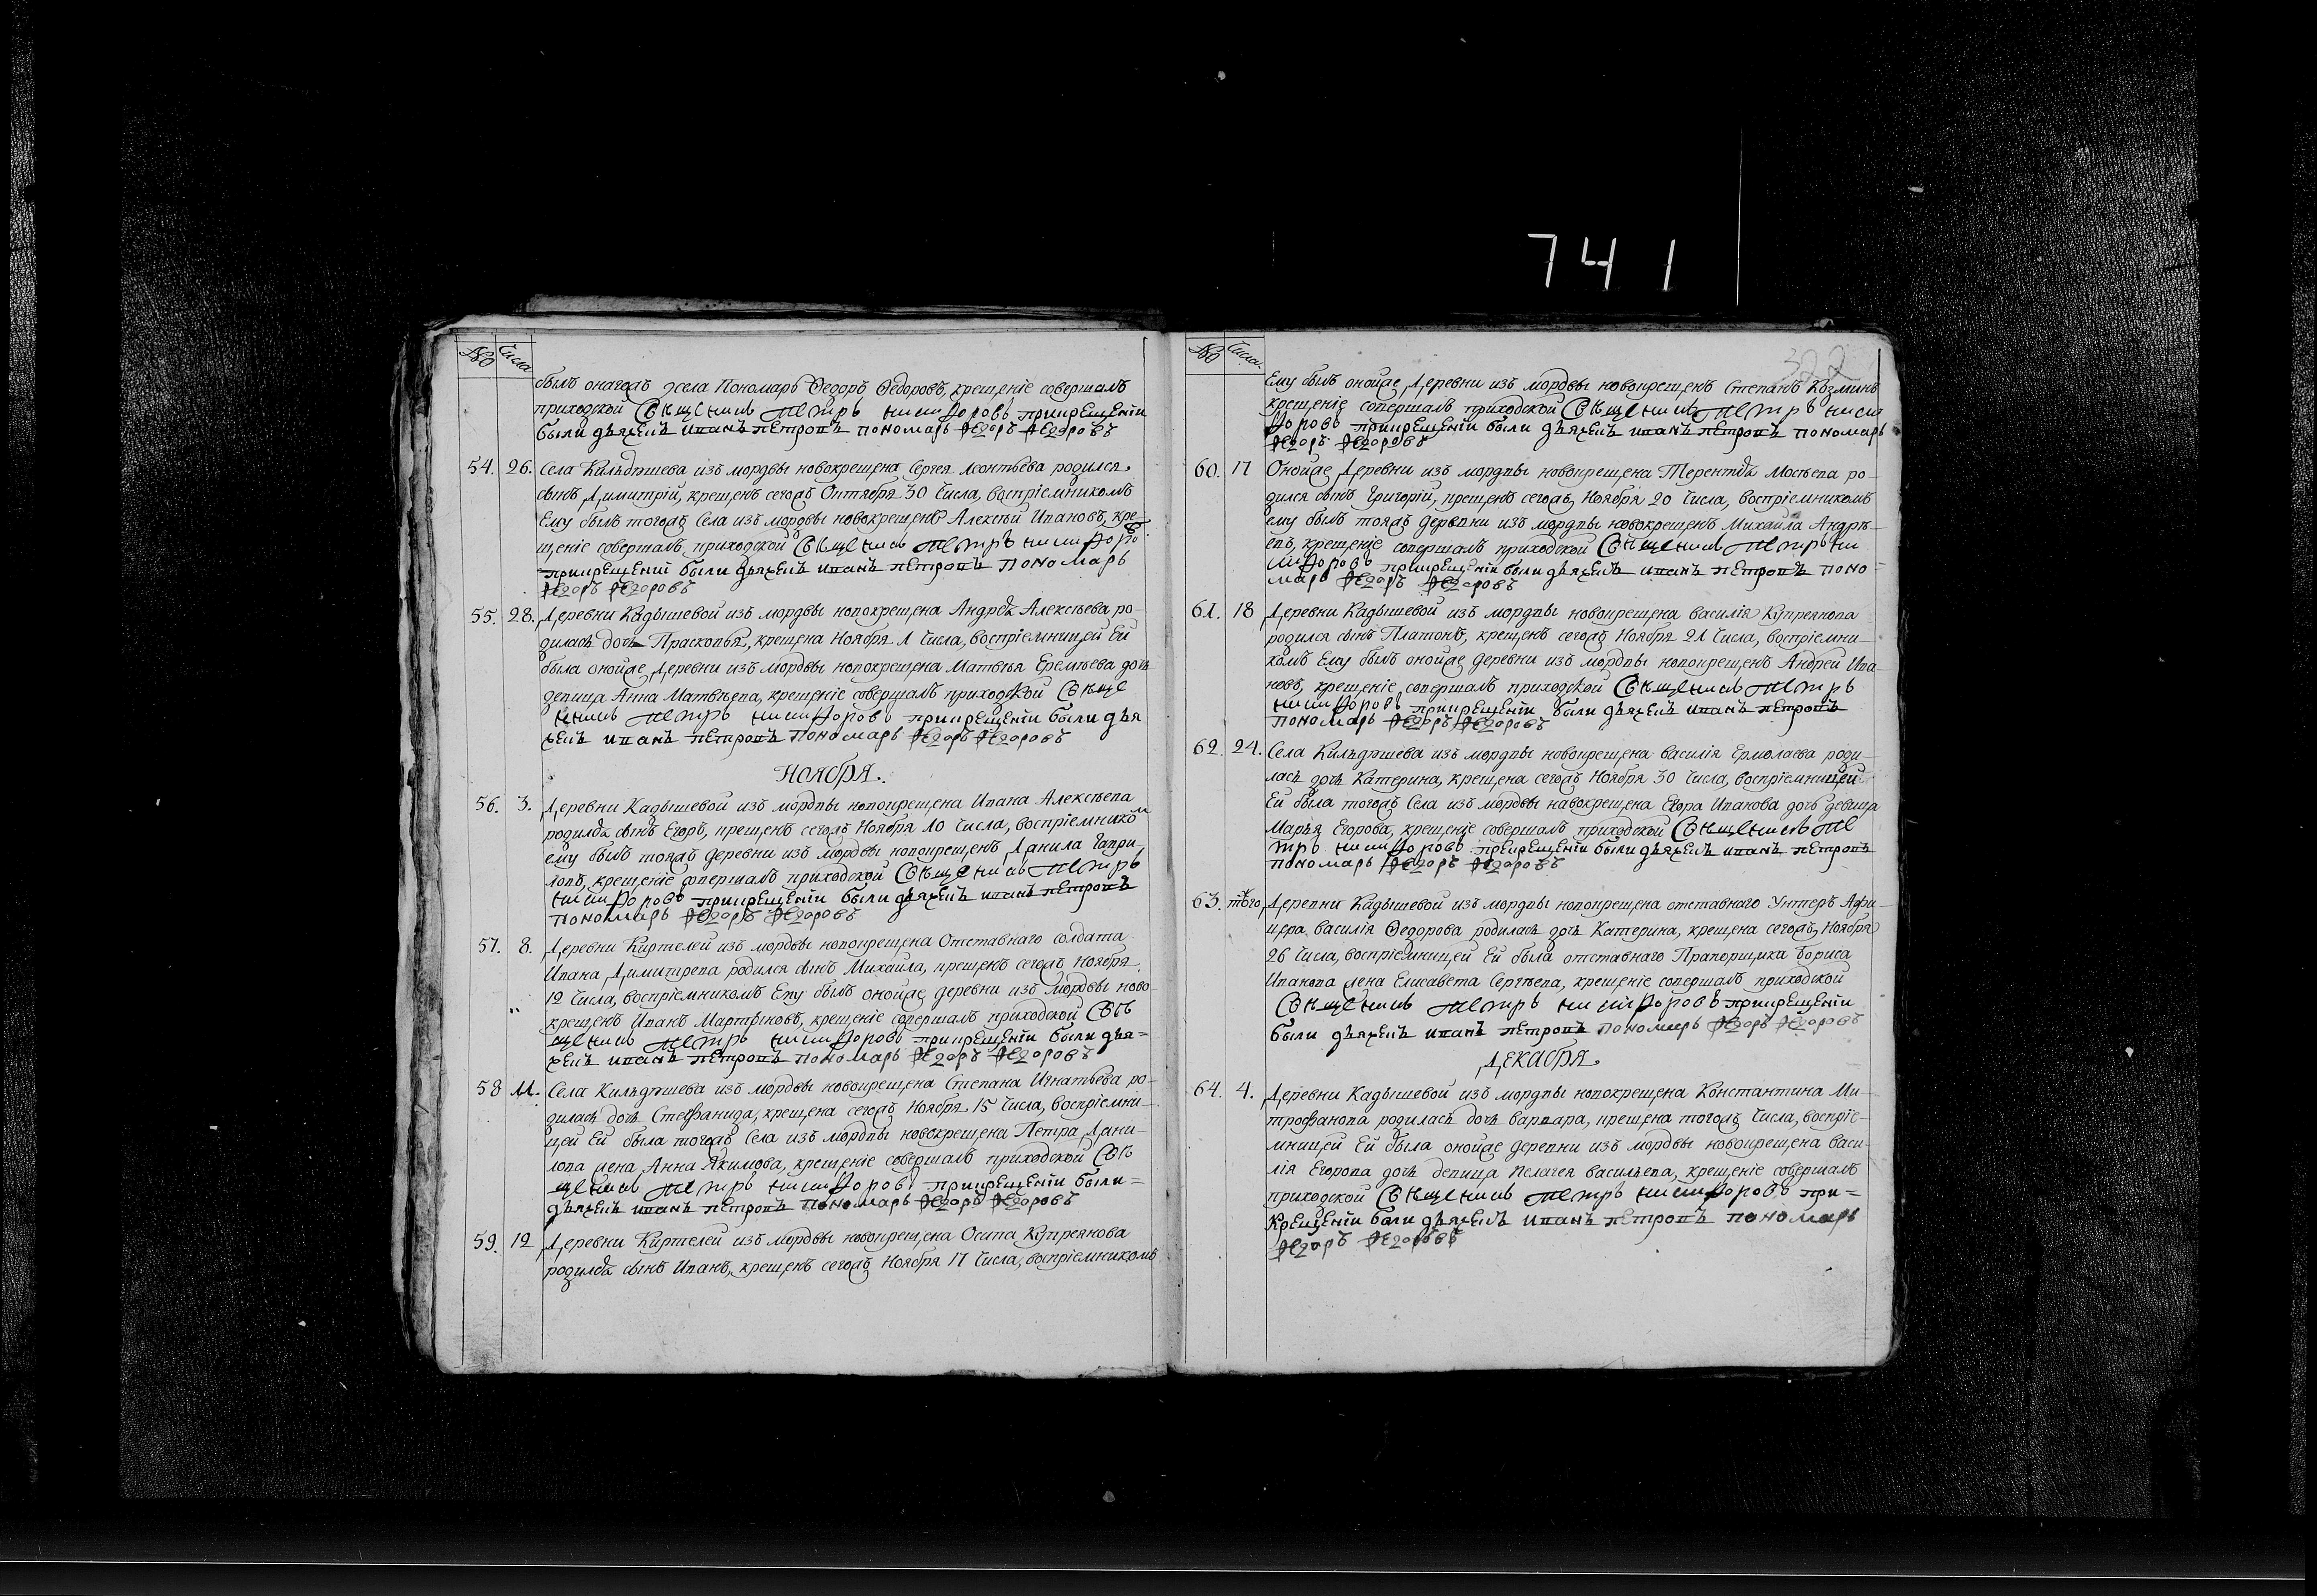 741
322
№ Числа
былъ оногожъ села Пономарь Ѳедоръ Ѳедоровъ, крещеніе совершалъ
приходской Священникъ Петръ Никифоровъ при крещеніи
были дьячекъ иванъ петровъ пономарь Ѳедоръ Ѳедоровъ
54. 26. Села Кильдюшева изъ мордвы новокрещена Сергея Леонтьева родился
сынъ Димитрій, крещенъ сегожъ Октября 30 Числа, воспріемникомъ
Ему былъ тогожъ Села изъ мордвы новокрещенъ Алексѣй Ивановъ, кре-
щеніе совершалъ приходской Священникъ Петръ Никифоровъ
при крещеніи были дьячекъ иванъ петровъ пономарь
Ѳедоръ Ѳедоровъ
55. 28. Деревни Кадышевой изъ мордвы новокрещена Андрѣя Алексѣева ро-
дилась дочь Прасковья, крещена Ноября 1 Числа, воспріемницей Ей
была онойже Деревни изъ мордвы новокрещена Матвѣя Еремѣева дочь
девица Анна Матвѣева, крещеніе совершалъ приходской Священ
никъ Петръ Никифоровъ при крещеніи были дья
чекъ иванъ петровъ пономарь Ѳедоръ Ѳедоровъ
Ноября.
56. 3. Деревни Кадышевой изъ мордвы новокрещена Ивана Алексѣева
родился сынъ Егоръ, крещенъ сегожъ Ноября 10 Числа, воспріемником
ему былъ тояжъ деревни изъ мордвы новокрещенъ Данила Гаври-
ловъ, крещеніе совершалъ приходской Священникъ Петръ
Никифоровъ при крещеніи были дьячекъ иванъ петровъ
пономарь Ѳедоръ Ѳедоровъ
57. 8. Деревни Киртелей изъ мордвы новокрещена Отставнаго солдата
Ивана Димитрева родился сынъ Михаила, крещенъ сегожъ Ноября
12 Числа, воспріемникомъ Ему былъ онойже деревни изъ мордвы ново-
крещенъ Иванъ Мартыновъ, крещеніе совершалъ приходской Свя
щенникъ Петръ Никифоровъ при крещеніи были дья=
чекъ иванъ петровъ пономарь Ѳедоръ Ѳедоровъ
58 11. Села Кильдюшева изъ мордвы новокрещена Степана Игнатьева ро-
дилась дочь Стефанида, крещена сегожъ Ноября 15 Числа, воспріемни-
цей Ей была тогожъ Села изъ мордвы новокрещена Петра Дани-
лова жена Анна Якимова, крещеніе совершалъ приходской Свя
щенникъ Петръ Никифоровъ при крещеніи были=
дьячекъ иванъ петровъ пономарь Ѳедоръ Ѳедоровъ
59. 12 Деревни Киртелей изъ мордвы новокрещена Осипа Купреянова
родился сынъ Иванъ, крещенъ сегожъ Ноября 17 Числа, воспріемникомъ
№ Числа
Ему былъ онойже Деревни изъ мордвы новокрещенъ Степанъ Козминъ
крещеніе совершалъ приходской Священникъ Петръ Ники
форовъ при крещеніи были дьячекъ иванъ петровъ пономарь
Ѳедоръ Ѳедоровъ
60. 17 Онойже Деревни изъ мордвы новокрещена Терентья Мосѣева ро-
дился сынъ Григорій, крещенъ сегожъ Ноября 20 Числа, воспріемникомъ
ему былъ тояжъ деревни изъ мордвы новокрещенъ Михаила Андрѣ-
евъ, крещеніе совершалъ приходской Священникъ Петръ Ни
кифоровъ при крещеніи были дьячекъ иванъ петровъ поно=
марь Ѳедоръ Ѳедоровъ
61. 18 Деревни Кадышевой изъ мордвы новокрещена василія Купреянова
родился сынъ Платонъ, крещенъ сегожъ Ноября 21 Числа, воспріемни-
комъ Ему былъ онойже деревни изъ мордвы новокрещенъ Андрей Ива-
новъ, крещеніе совершалъ приходской Священникъ Петръ
Никифоровъ при крещеніи были дьячекъ иванъ петровъ
пономарь Ѳедоръ Ѳедоровъ
62. 24. Села Кильдюшева изъ мордвы новокрещена василія Ермолаева роди-
лась дочь Катерина, крещена сегожъ Ноября 30 Числа, воспріемницей
Ей была тогожъ Села изъ мордвы навокрещена Егора Иванова дочь девица
Марья Егорова, крещеніе совершалъ приходской Священникъ Пе
тръ Никифоровъ при крещеніи были дьячекъ иванъ петровъ
пономарь Ѳедоръ Ѳедоровъ
63. тогож Деревни Кадышевой изъ мордвы новокрещена отставнаго Унтеръ Афи-
цера василія Ѳедорова родилась дочь Катерина, крещена сегожъ Ноября
26 Числа, воспріемницей Ей была отставнаго Прапорщика Бориса
Иванова жена Елисавета Сергѣева, крещеніе совершалъ приходской
Священникъ Петръ Никифоровъ при крещеніи
были дьячекъ иванъ петровъ пономарь Ѳедоръ Ѳедоровъ
Декабря.
64. 4. Деревни Кадышевой изъ мордвы новокрещена Константина Ми-
трофанова родилась дочь варвара, крещена тогожъ Числа, воспріе-
мницей Ей была онойже деревни изъ мордвы новокрещена васи-
лія Егорова дочь девица Пелагея васильева, крещеніе совершалъ
приходской Священникъ Петръ Никифоровъ при=
крещеніи были дьячекъ иванъ петровъ пономарь
Ѳедоръ Ѳедоровъ